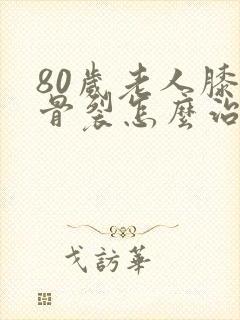 80歲老人膝
骨裂怎麼治
戈訪華